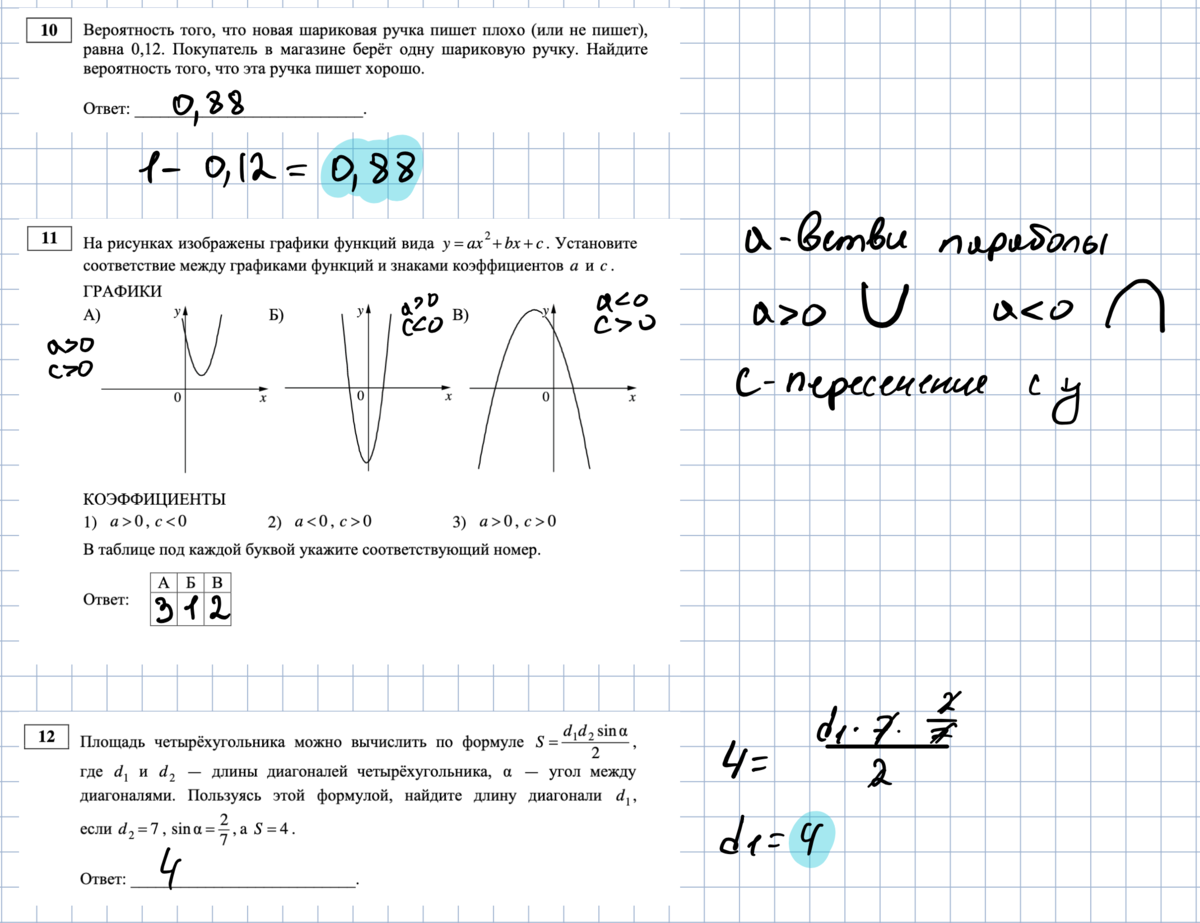 10 Вероятность того, что новая шариковая ручка пишет плохо (или не пишет),
равна 0,12. Покупатель в магазине берёт одну шариковую ручку. Найдите
вероятность того, что эта ручка пишет хорошо.
Ответ: 0,88.
1 - 0,12 = 0,88
11 На рисунках изображены графики функций вида y = ax² + bx + c. Установите
соответствие между графиками функций и знаками коэффициентов a и c.
ГРАФИКИ
А) Б) В)
a>0
c>0
a>0
c<0
a<0
c>0
y y y
0 x 0 x 0 x
КОЭФФИЦИЕНТЫ
1) a > 0, c < 0 2) a < 0, c > 0 3) a > 0, c > 0
В таблице под каждой буквой укажите соответствующий номер.
А Б В
Ответ: 3 1 2
a - ветви параболы
a>0 a<0
c - пересечение с y
12 Площадь четырёхугольника можно вычислить по формуле S = d₁d₂ sin α / 2,
где d₁ и d₂ — длины диагоналей четырёхугольника, α — угол между
диагоналями. Пользуясь этой формулой, найдите длину диагонали d₁,
если d₂ = 7, sin α = 2/7, а S = 4.
Ответ: 4.
4 = d1 · 7 · 2/7 / 2
d1 = 4